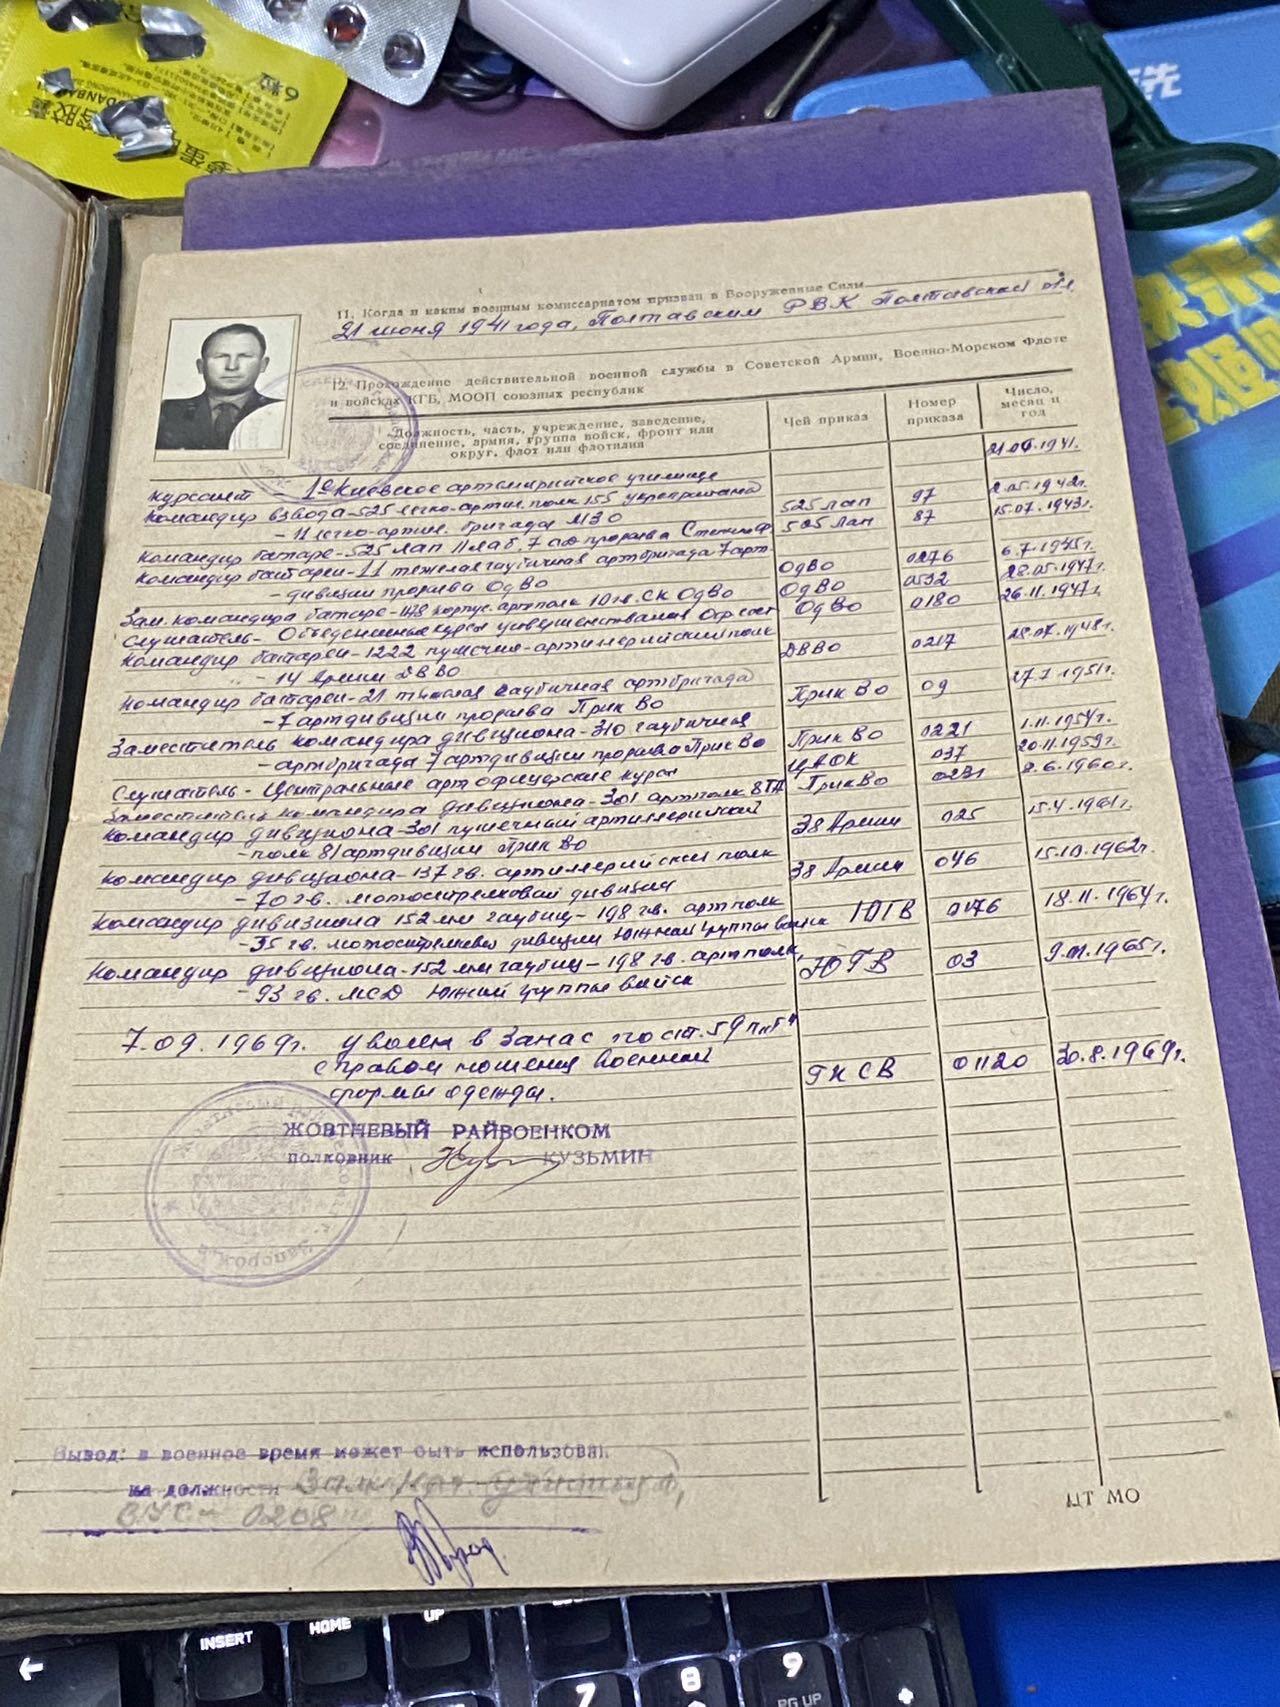 6粒
11. Когда и каким военным комиссариатом призван в Вооруженные Силы
21 июня 1941 года, Полтавским РВК Полтавской обл.
12. Прохождение действительной военной службы в Советской Армии, Военно-Морском Флоте
и войсках КГБ, МООП союзных республик
Должность, часть, учреждение, заведение, соединение, армия, группа войск, фронт или округ, флот или флотилия
Чей приказ
Номер приказа
Число, месяц и год
Курсант - 1е Киевское артиллерийское училище
Командир взвода - 525 легко-артил. полк 155 укрепрайона 525 лап 97 2.05.1942г.
- 11 легко-артил. бригада МЗО 505 Лап 87 15.07.1943г.
Командир батареи - 525 ЛАП 11 лаб. 7 ад прорыва
Командир батареи - 11 тяжелая гаубичная артбригада 7 арт-
- дивизии прорыва ОдВО ОдВО 0276 6.7.1945г.
Зам. командира батареи - 1128 корпус. артполк 10 гв. СК ОдВО ОдВО 0532 28.05.1947г.
Слушатель - Объединенные курсы усовершенствования Оф. сост ОдВО 0180 26.11.1947г.
Командир батареи - 1222 пушечно-артиллерийский полк ДВВО 0217 28.07.1948г.
- 14 Армии ДВВО
Командир батареи - 21 тяжелая гаубичная артбригада ПрикВо 09 27.1.1951г.
- 7 артдивизии прорыва ПрикВо
Заместитель командира дивизиона - 310 гаубичная ПрикВо 0221 1.11.1954г.
- артбригада 7 артдивизии прорыва ПрикВо
Слушатель - Центральные артофицерские курсы ЦАОК 037 20.11.1959г.
Заместитель командира дивизиона - 301 артполк ПрикВо 8.6.1960г.
Командир дивизиона - 301 пушечный артиллерийский 38 Армии 025 15.4.1961г.
- полк 81 артдивизии ПрикВо
Командир дивизиона - 137 гв. артиллерийский полк 38 Армии 046 15.10.1962г.
- 70 гв. мотострелковая дивизия
Командир дивизиона 152 мм гаубиц - 198 гв. артполк ЮГВ 0176 18.11.1964г.
- 35 гв. мотострелковой дивизии Южной группы войск
Командир дивизиона - 152 мм гаубиц - 198 гв. артполк, ЮГВ 03
- 93 гв. МСД Южной группы войск
7.09.1969г. уволен в запас по ст. 59 п. "б"
с правом ношения военной ГК СВ 01120 30.8.1969г.
формы одежды.
ЖОВТНЕВЫЙ РАЙВОЕНКОМ
полковник КУЗЬМИН
Вывод: в военное время может быть использован
на должности
ВУС - 0208
ЦТ МО
INSERT
HOME
UP
7
8
9
PG UP